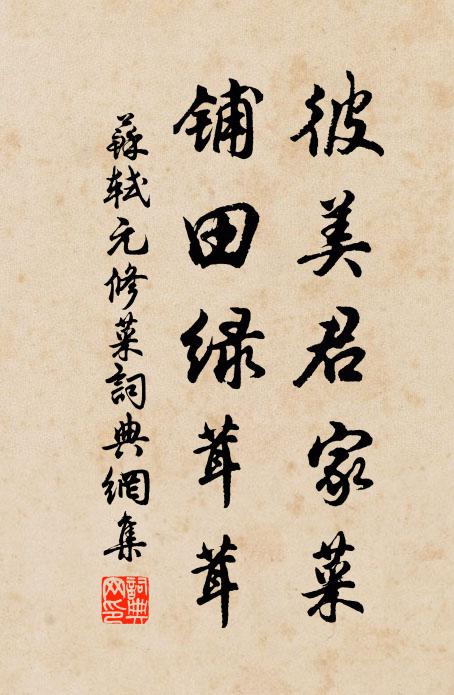 彼美君家菜
铺田绿茸茸
蘇軾元修菜詞典網集
詞典網印